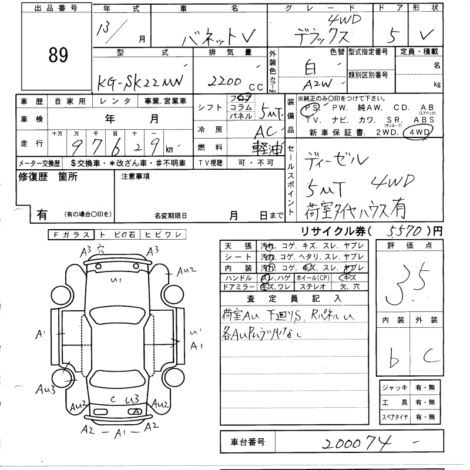 出品番号 89
年式 13/ 年 月
車名 バネットV
グレード 4WD デラックス
ドア 5
形状 V
型式 KG-SK22MN
排気量 2200 CC
外装色 白 A2W
型式指定番号
類別区別番号
定員・積載 名 kg
車歴 自家用 レンタ 事業、営業車
車検 年 月
走行 十万 万 千 百 十 9 7 6 2 9 km
シフト フロア コラム パネル 5MT
冷房 AC
燃料 軽油
装備品 ※純正のみ○印をつけて下さい。
PS PW. 純AW. CD. AB
(エアバック)
TV. ナビ. カワ. SR. ABS
新車保証書. 2WD. 4WD
メーター交換歴 $交換車・*改ざん車・#不明車
TV視聴 可・不可
セールスポイント
ディーゼル
5MT 4WD
荷室タイヤハウス有
修復歴 箇所
有 (有の場合○印を)
注意事項
名変期限日 月 日迄
リサイクル券 ( 5570 )円
Fガラス ト ビ○石 ヒビワレ
天張 汚れ. コゲ. キズ. スレ. ヤブレ
シート 汚れ. コゲ. ヘタリ. スレ. ヤブレ
内装 汚れ. コゲ. キズ. スレ. ヤブレ
ハンドル スレ ハゲ ホイール(CP) キズ
ドアミラー キズ. ワレ ステレオ 欠. 穴
評価点 3.5
内装 b
外装 C
査定員記入
荷室AU 下廻りS. RパネルU
ジャッキ 有・無
工具 有・無
スペアタイヤ 有・無
車台番号 200074-
A3 穴 A3
U1
AU2
A1
U1
A1
AU3
C U3
AU2
A2 A1 A2